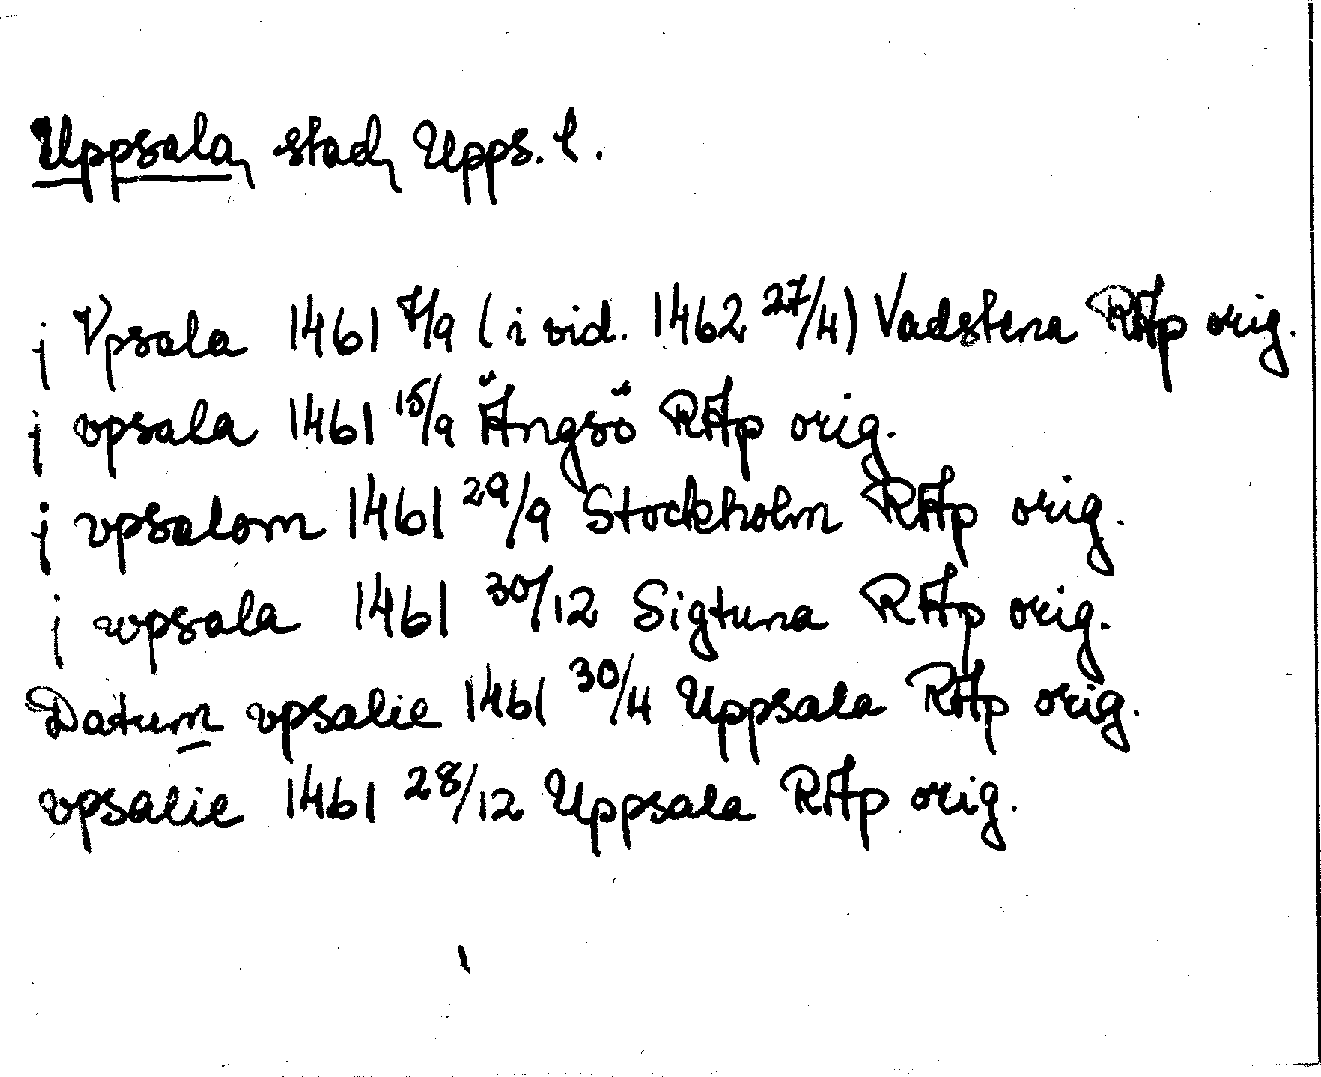 Uppsala, stad, Upps. l.
j Vpsala 1461 7/9 (i vid. 1462 27/4) Vadstena RAp orig.
j vpsala 1461 15/9 Ängsö RAp orig.
j vpsalom 1461 29/9 Stockholm RAp orig.
j wpsala 1461 30/12 Sigtuna RAp orig.
Datum vpsalie 1461 30/4 Uppsala RAp orig.
vpsalie 1461 28/12 Uppsala RAp orig.